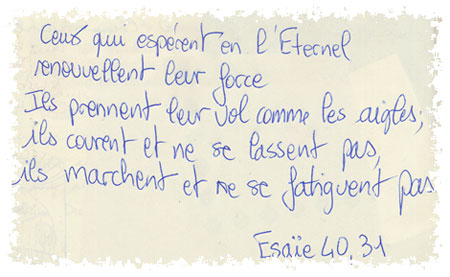 Ceux qui espérent en l'Eternel
renouvellent leur force
Ils prennent leur vol comme les aigles,
ils courent et ne se lassent pas,
ils marchent et ne se fatiguent pas
Esaïe 40,31